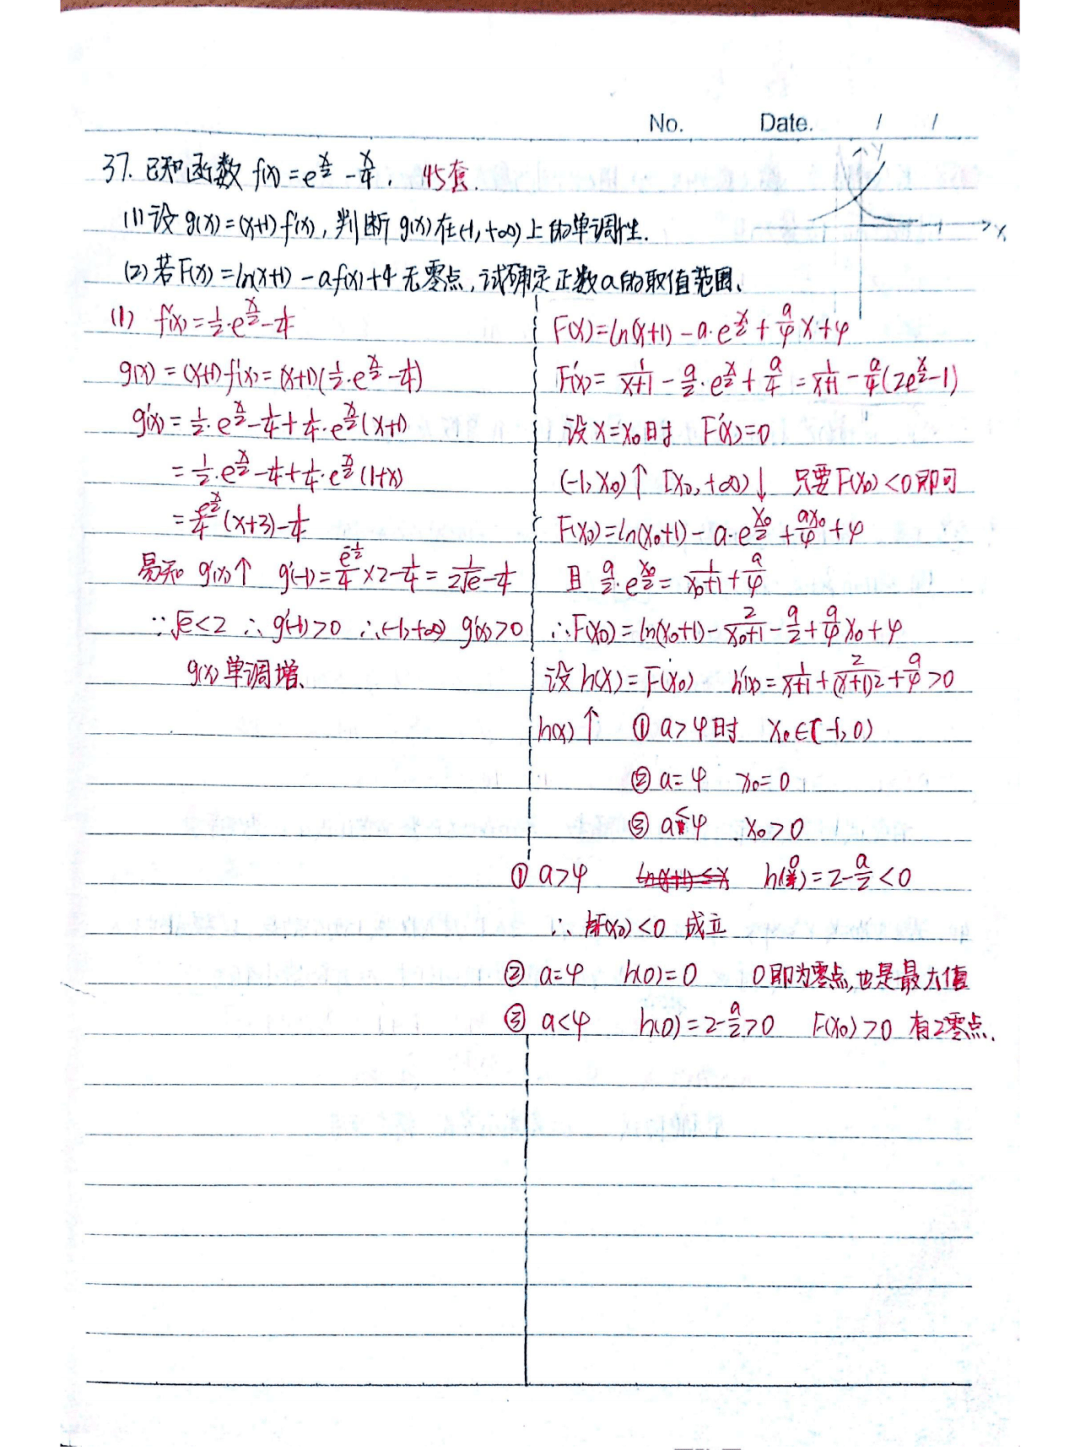 No. Date. / /
37. 已知函数 f(x) = e^{x/2} - x/4. 45套.
(1) 设 g(x) = (x+1) f'(x), 判断 g(x) 在 (-1, +∞) 上的单调性.
(2) 若 F(x) = ln(x+1) - a f(x) + 4 无零点, 试确定正数 a 的取值范围.
(1) f'(x) = 1/2·e^{x/2} - 1/4
g(x) = (x+1) f'(x) = (x+1)(1/2·e^{x/2} - 1/4)
g'(x) = 1/2·e^{x/2} - 1/4 + 1/4·e^{x/2}(x+1)
= 1/2·e^{x/2} - 1/4 + 1/4·e^{x/2}(1+x)
= e^{x/2}/4 (x+3) - 1/4
易知 g'(x)↑ g'(-1) = e^{-1/2}/4 × 2 - 1/4 = 1/(2√e) - 1/4
∵ √e < 2 ∴ g'(-1) > 0 ∴ (-1, +∞) g'(x) > 0
g(x) 单调增.
F(x) = ln(x+1) - a·e^{x/2} + a/4 x + 4
F'(x) = 1/(x+1) - a/2·e^{x/2} + a/4 = 1/(x+1) - a/4(2e^{x/2} - 1)
设 x = x₀ 时 F'(x) = 0
(-1, x₀)↑ [x₀, +∞)↓ 只要 F(x₀) < 0 即可
F(x₀) = ln(x₀+1) - a·e^{x₀/2} + ax₀/4 + 4
且 a/2·e^{x₀/2} = 1/(x₀+1) + a/4
∴ F(x₀) = ln(x₀+1) - 2/(x₀+1) - a/2 + a/4 x₀ + 4
设 h(x) = F(x₀) h'(x) = 1/(x+1) + 2/(x+1)2 + a/4 > 0
h(x)↑ ① a > 4 时 x₀ ∈ (-1, 0)
② a = 4 x₀ = 0
③ a < 4 x₀ > 0
① a > 4 ln(x+1) ≤ x h(0) = 2 - a/2 < 0
∴ F(x₀) < 0 成立
② a = 4 h(0) = 0 0 即为零点, 也是最大值
③ a < 4 h(0) = 2 - a/2 > 0 F(x₀) > 0 有2零点.